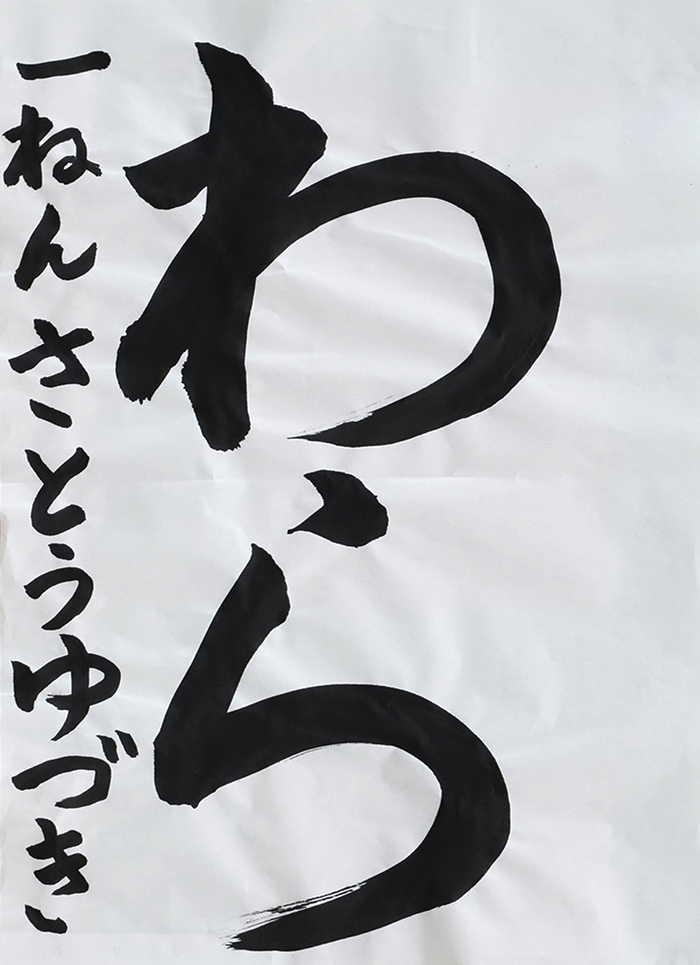 わら
一ねんさとうゆづき